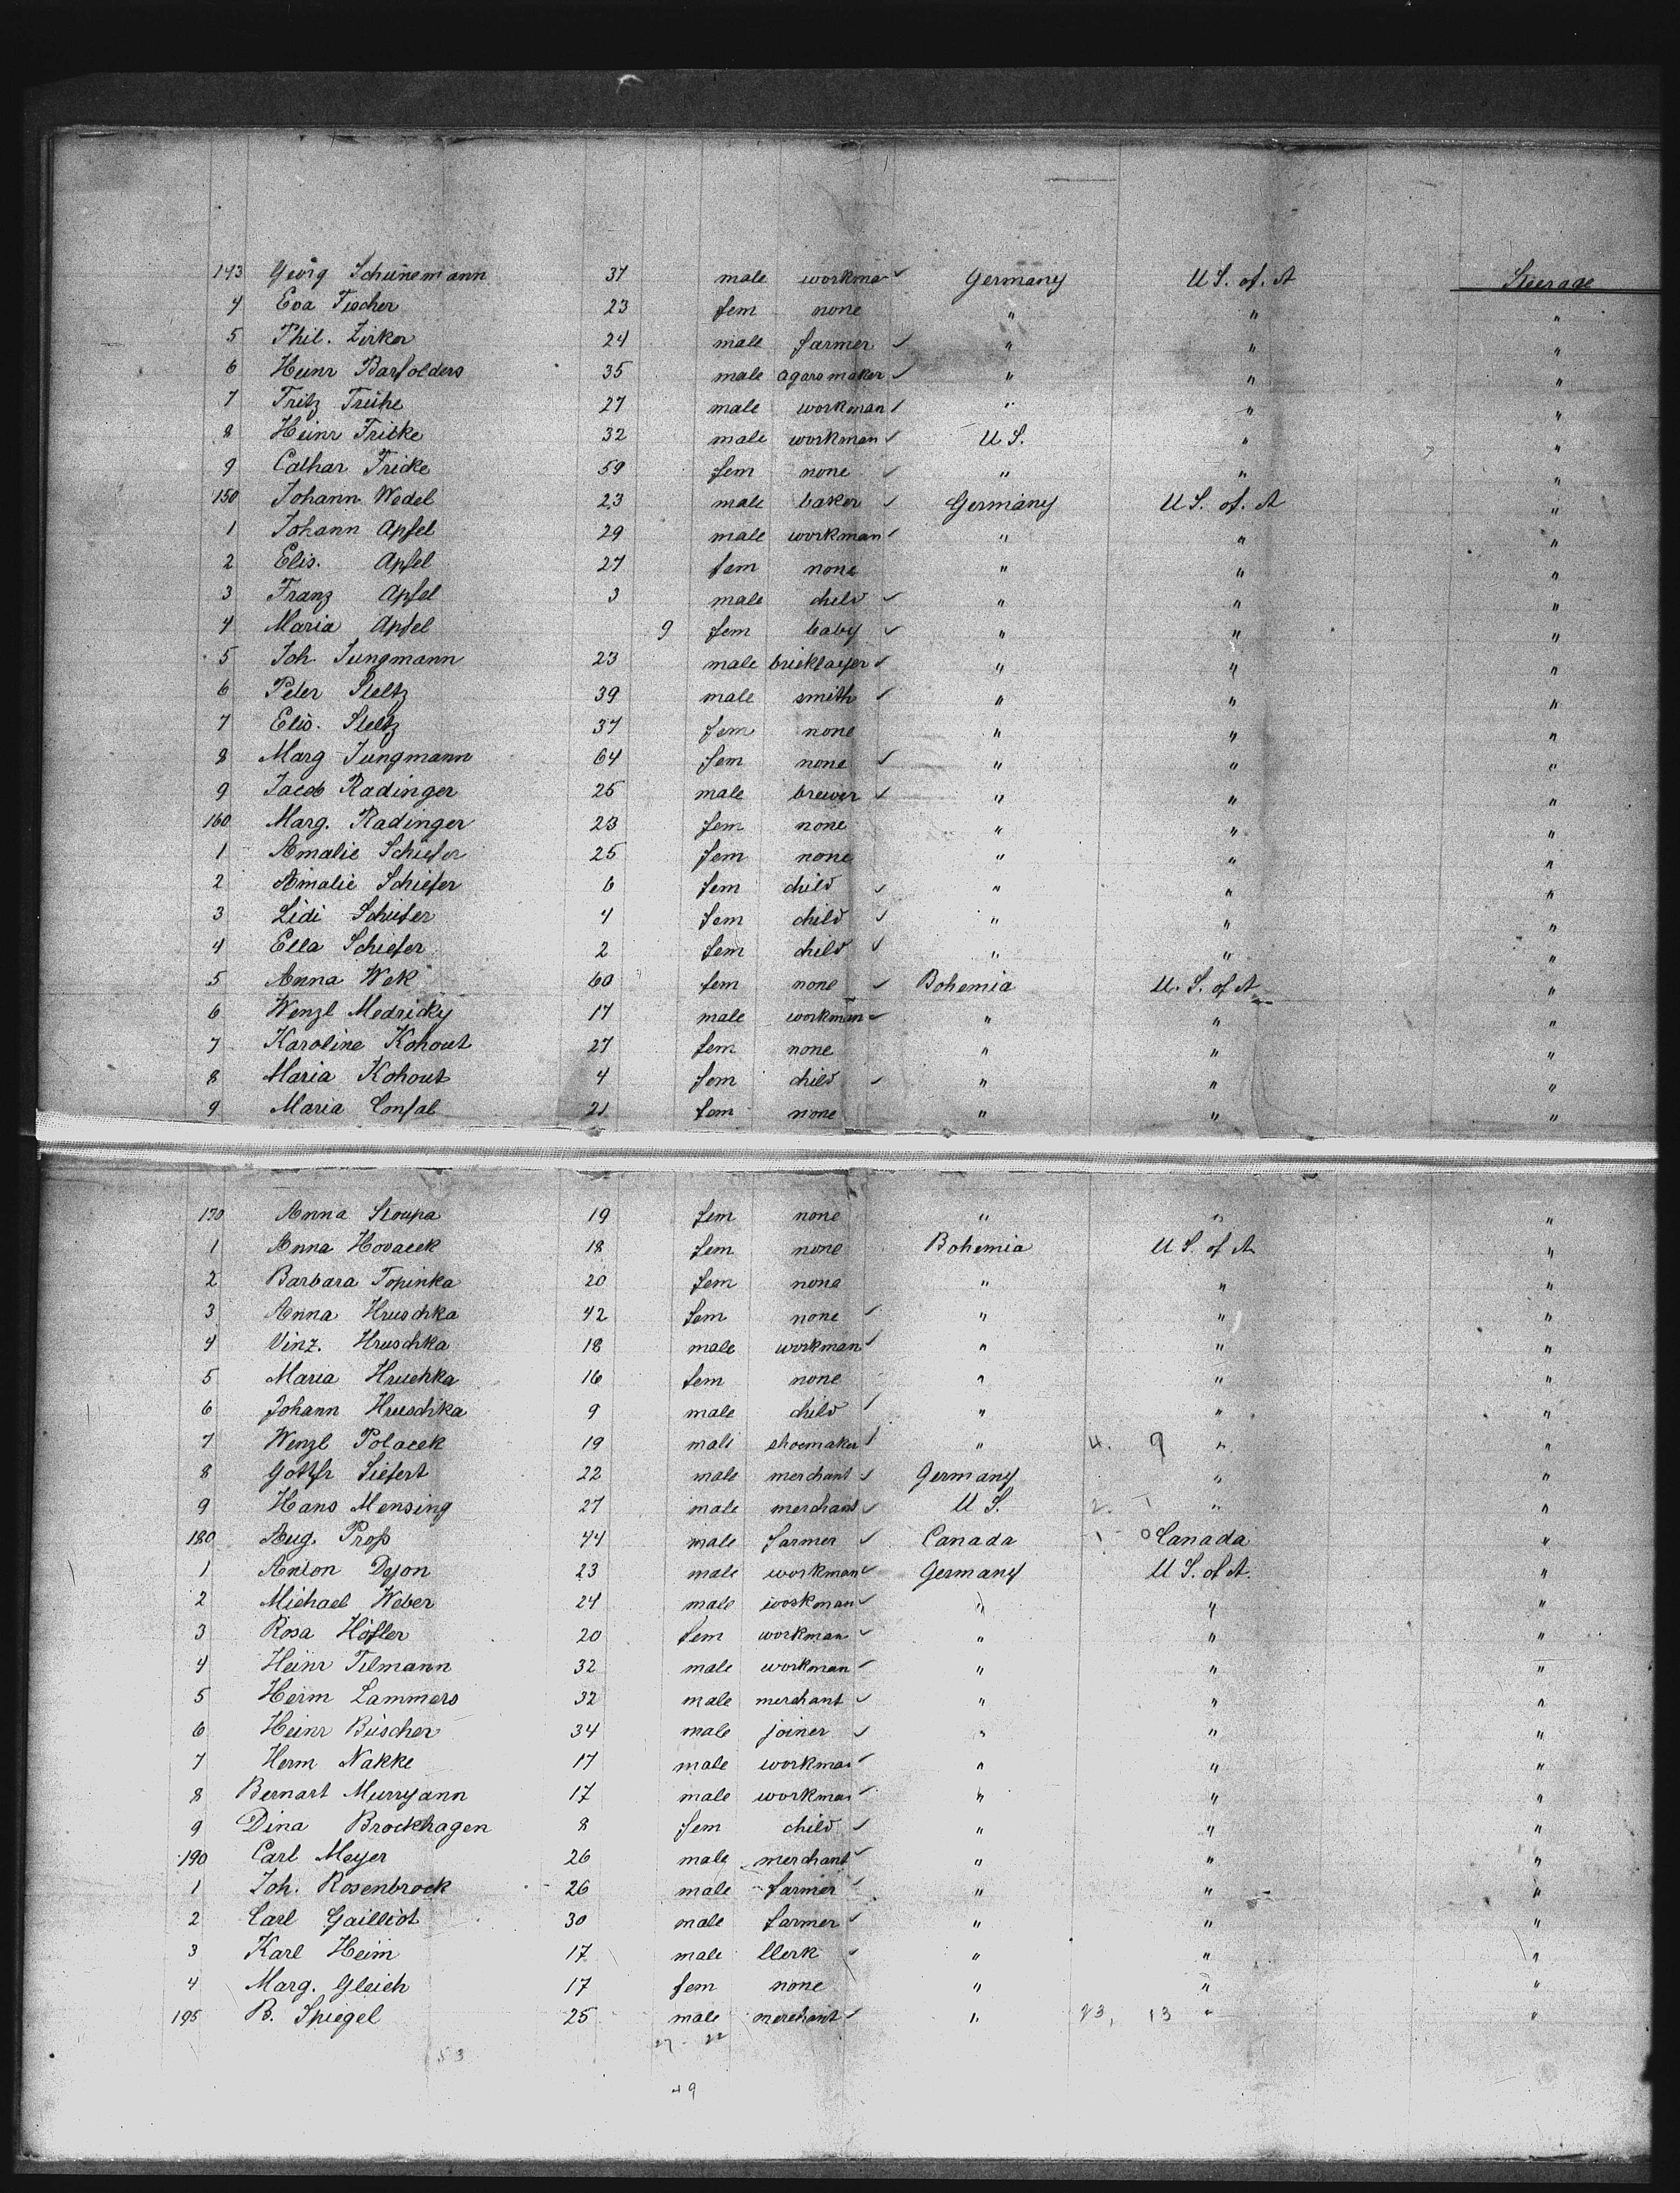 143 Georg Schünemann 37 male workma Germany U S. of. A Steerage
4 Eva Fischer 23 fem none " " "
5 Phil. Zirker 24 male farmer " " "
6 Heinr Barfolders 35 male maker " " "
7 Fritz 27 male workman " " "
8 Heinr Fricke 32 male workman U S. " "
9 Cathar Fricke 59 fem none " " "
150 Johann Wedel 23 male baker Germany U S. of. A "
1 Johann Apfel 29 male workman " " "
2 Elis. Apfel 27 fem none " " "
3 Franz Apfel 3 male child " " "
4 Maria Apfel 9 fem baby " " "
5 Joh. Jungmann 23 male bricklayer " " "
6 Peter Steltz 39 male smith " " "
7 Elis. Steltz 37 fem none " " "
8 Marg Jungmann 64 fem none " " "
9 Jacob Radinger 25 male brewer " " "
160 Marg. Radinger 23 fem none " " "
1 Amalie Schiefer 25 fem none " " "
2 Amalie Schiefer 6 fem child " " "
3 Lidi Schiefer 4 fem child " " "
4 Ella Schiefer 2 fem child " " "
5 Anna Wek 60 fem none Bohemia U. S. of A "
6 Wenzl Medricky 17 male workman " " "
7 Karoline Kohout 27 fem none " " "
8 Maria Kohout 4 fem child " " "
9 Maria Consal 21 fem none " " "
170 Anna Stoupa 19 fem none " " "
1 Anna Hovacek 18 fem none Bohemia U S. of A "
2 Barbara Topinka 20 fem none " " "
3 Anna Hruschka 42 fem none " " "
4 Vinz. Hruschka 18 male workman " " "
5 Maria Hruchka 16 fem none " " "
6 Johann Hruschka 9 male child " " "
7 Wenzl Polacek 19 male shoemaker " 4. 9 " "
8 Gottfr Siefert 22 male merchant Germany " "
9 Hans Mensing 27 male merchant U S. 2. 1 " "
180 Aug. Prop 44 male farmer Canada 1 - 0 Canada "
1 Anton Dyon 23 male workman Germany U S. of A. "
2 Michael Weber 24 male workman " " "
3 Rosa Höfler 20 fem workman " " "
4 Heinr Tilmann 32 male workman " " "
5 Herm Lammers 32 male merchant " " "
6 Heinr Büscher 34 male joiner " " "
7 Herm Nakke 17 male workman " " "
8 Bernart Murryann 17 male workman " " "
9 Dina Brockhagen 8 fem child " " "
190 Carl Meyer 26 male merchant " " "
1 Joh. Rosenbrock 26 male farmer " " "
2 Carl Gailliot 30 male farmer " " "
3 Karl Heim 17 male Clerk " " "
4 Marg. Gleich 17 fem none " " "
195 B. Spiegel 25 male merchant " 23, 13 " "
27 - 22
53
49